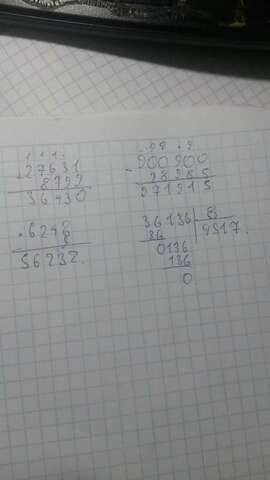 27631
+ 8799
36430
- 900900
28985
871915
6248
56232
36136 8
36 4517.
0136
136
0